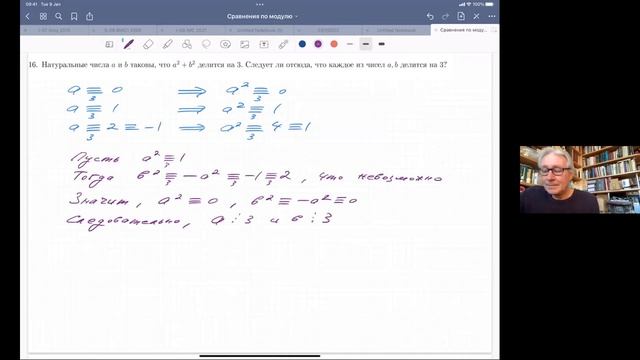 09:41 Tue 9 Jan
Сравнения по модулю
Untitled Notebook
Сравнения по моду...
16. Натуральные числа a и b таковы, что a² + b² делится на 3. Следует ли отсюда, что каждое из чисел a, b делится на 3?
a ≡₃ 0 ⟹ a² ≡₃ 0
a ≡₃ 1 ⟹ a² ≡₃ 1
a ≡₃ 2 ≡ −1 ⟹ a² ≡₃ 4 ≡ 1
Пусть a² ≡₃ 1
Тогда b² ≡₃ −a² ≡₃ −1 ≡₃ 2, что невозможно
Значит, a² ≡ 0, b² ≡ −a² ≡ 0
Следовательно, a ⋮ 3 и b ⋮ 3